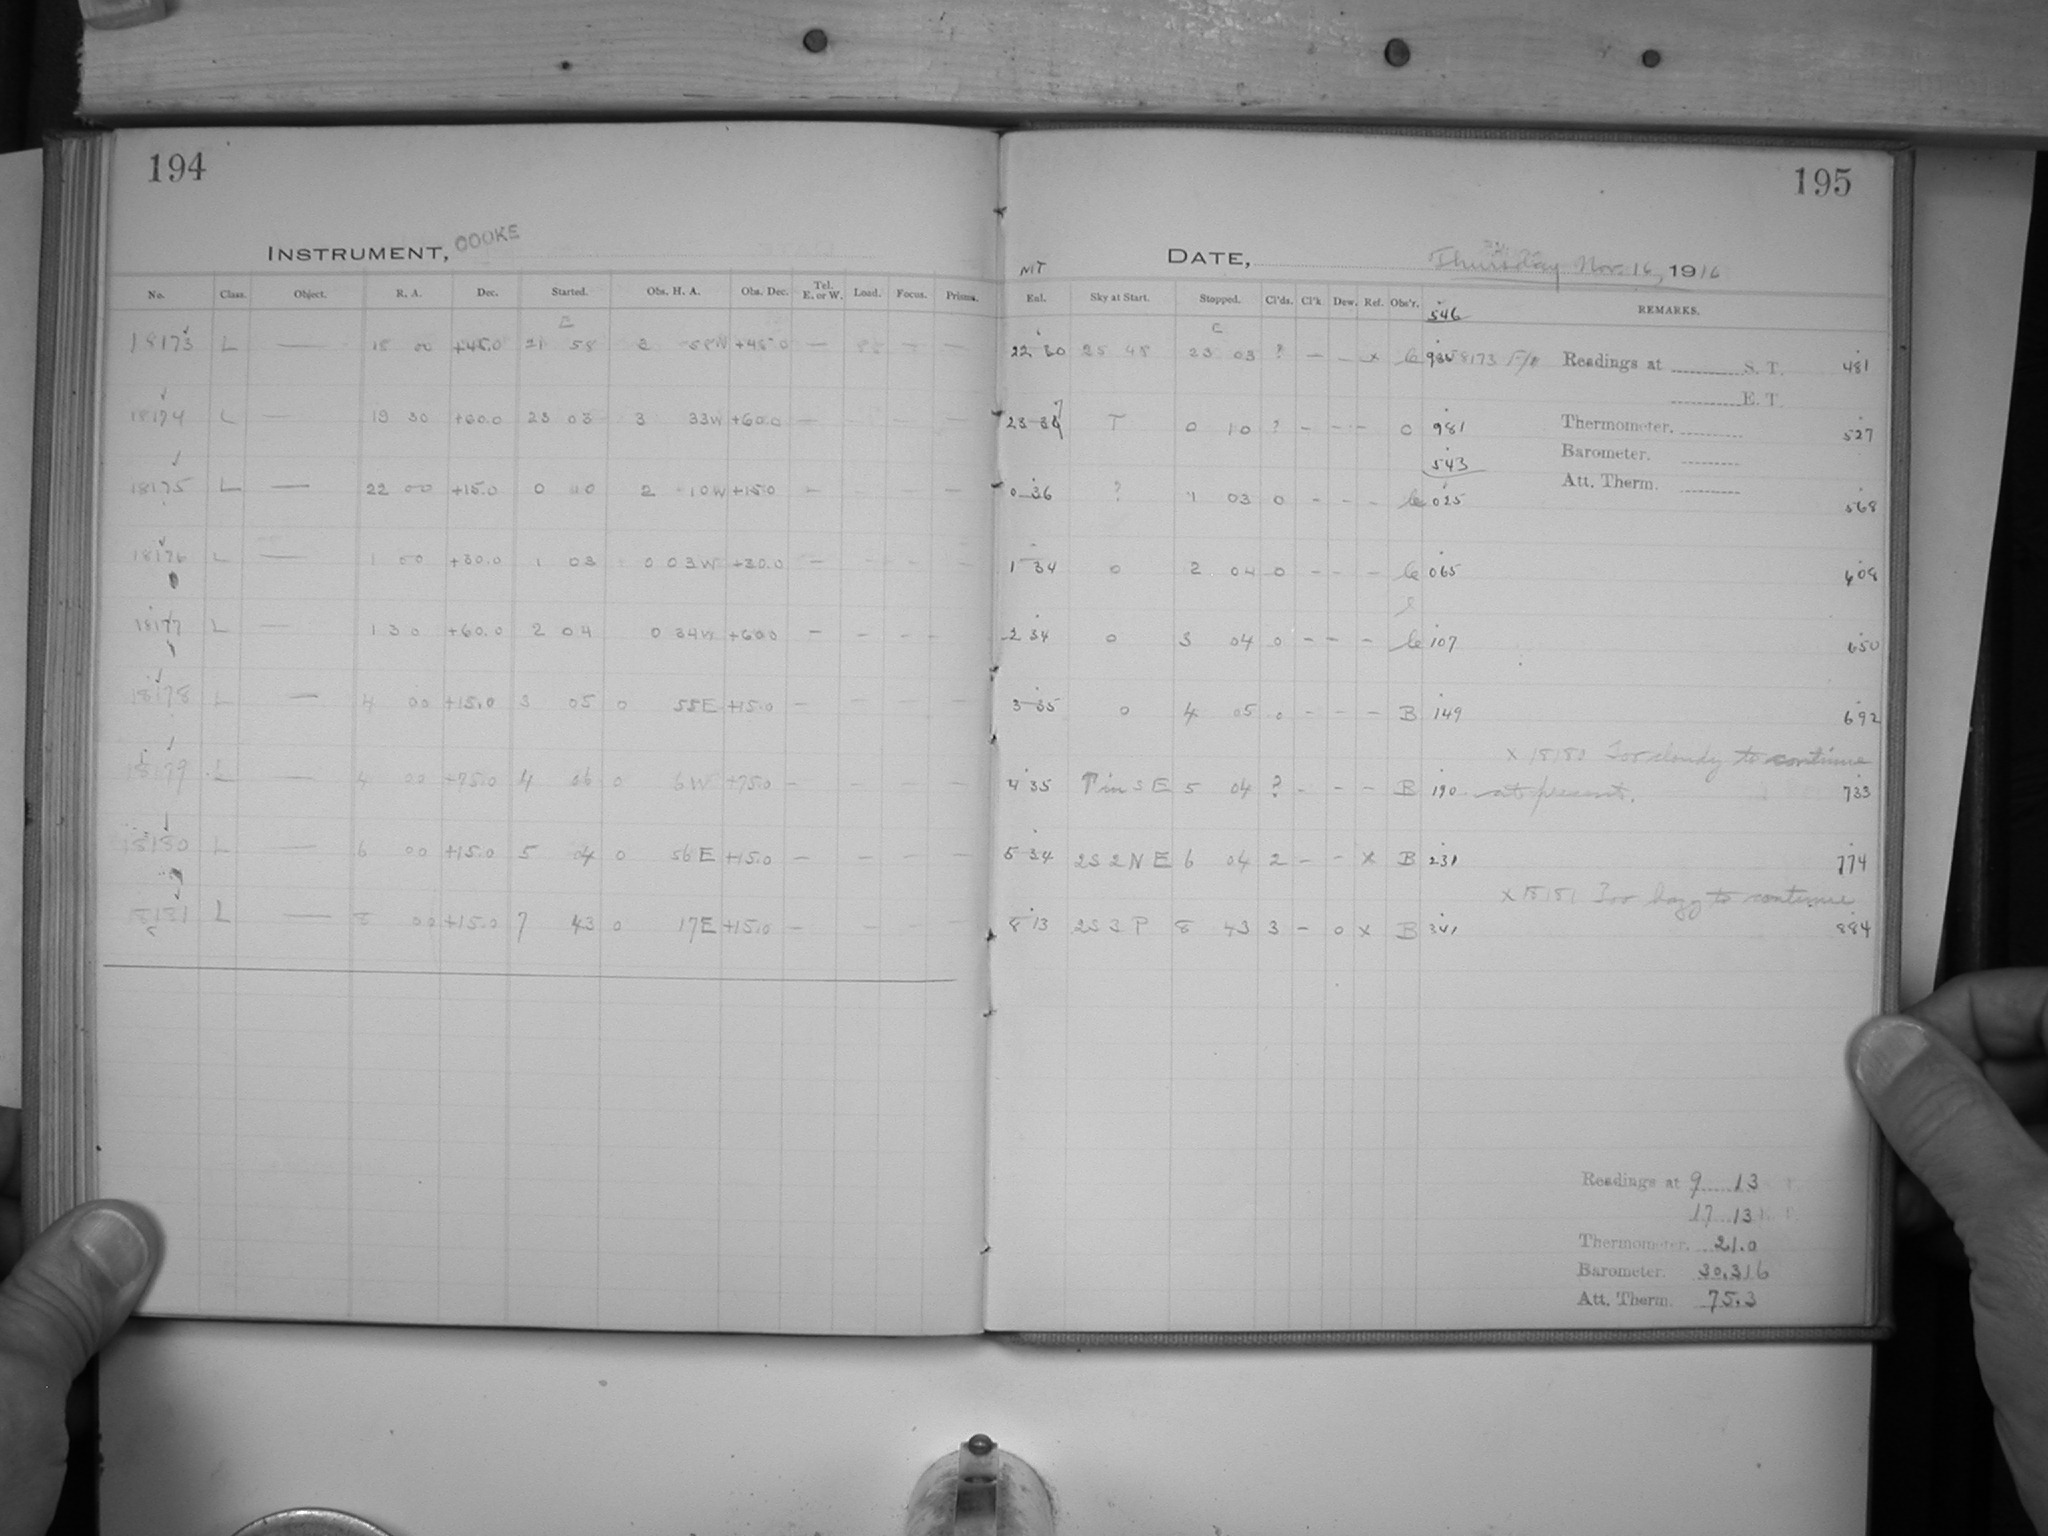 194
INSTRUMENT, COOKE
No. Class. Object. R. A. Dec. Started. Obs. H. A. Obs. Dec. Tel. E. or W. Load. Focus. Prisms.
E
18173 L — 18 00 +45.0 21 58 3 58W +45.0 — — —
18174 L — 19 30 +60.0 23 03 3 33W +60.0 — — — —
18175 L — 22 00 +15.0 0 10 2 10W +15.0 — —
18176 L — 1 00 +30.0 1 03 0 03W +30.0 — — — —
18177 L — 1 30 +60.0 2 04 0 34W +60.0 — — — —
18178 L — 4 00 +15.0 3 05 0 55E +15.0 — — — —
18179 L — 4 00 +75.0 4 06 0 6W +75.0 — — — —
18180 L — 6 00 +15.0 5 04 0 56E +15.0 — — — —
18181 L — 8 00 +15.0 7 43 0 17E +15.0 — — — —
195
DATE, Thursday Nov. 16, 1916
MT
Enl. Sky at Start. Stopped. Cl'ds. Cl'k. Dew. Ref. Obs'r. 546 REMARKS.
C
22 30 2S 4S 23 03 ? — — x 8173 Readings at S. T. 481
E. T.
T 0 10 ? — — — C 981 Thermometer. 527
543 Barometer.
0 36 ? 1 03 0 — — — 025 Att. Therm. 568
1 34 0 2 04 0 — — — 065 608
2 34 0 3 04 0 — — — 107 650
3 35 0 4 05 0 — — — B 149 692
x 18180 Too cloudy to continue
4 35 P in S E 5 04 ? — — — B 190 at present. 733
5 34 2S 2N E 6 04 2 — — x B 231 774
x 18181 Too hazy to continue
8 13 2S 3 P 8 43 3 — 0 x B 341 884
Readings at 9 13
17 13
Thermometer. 21.0
Barometer. 30.316
Att. Therm. 75.3